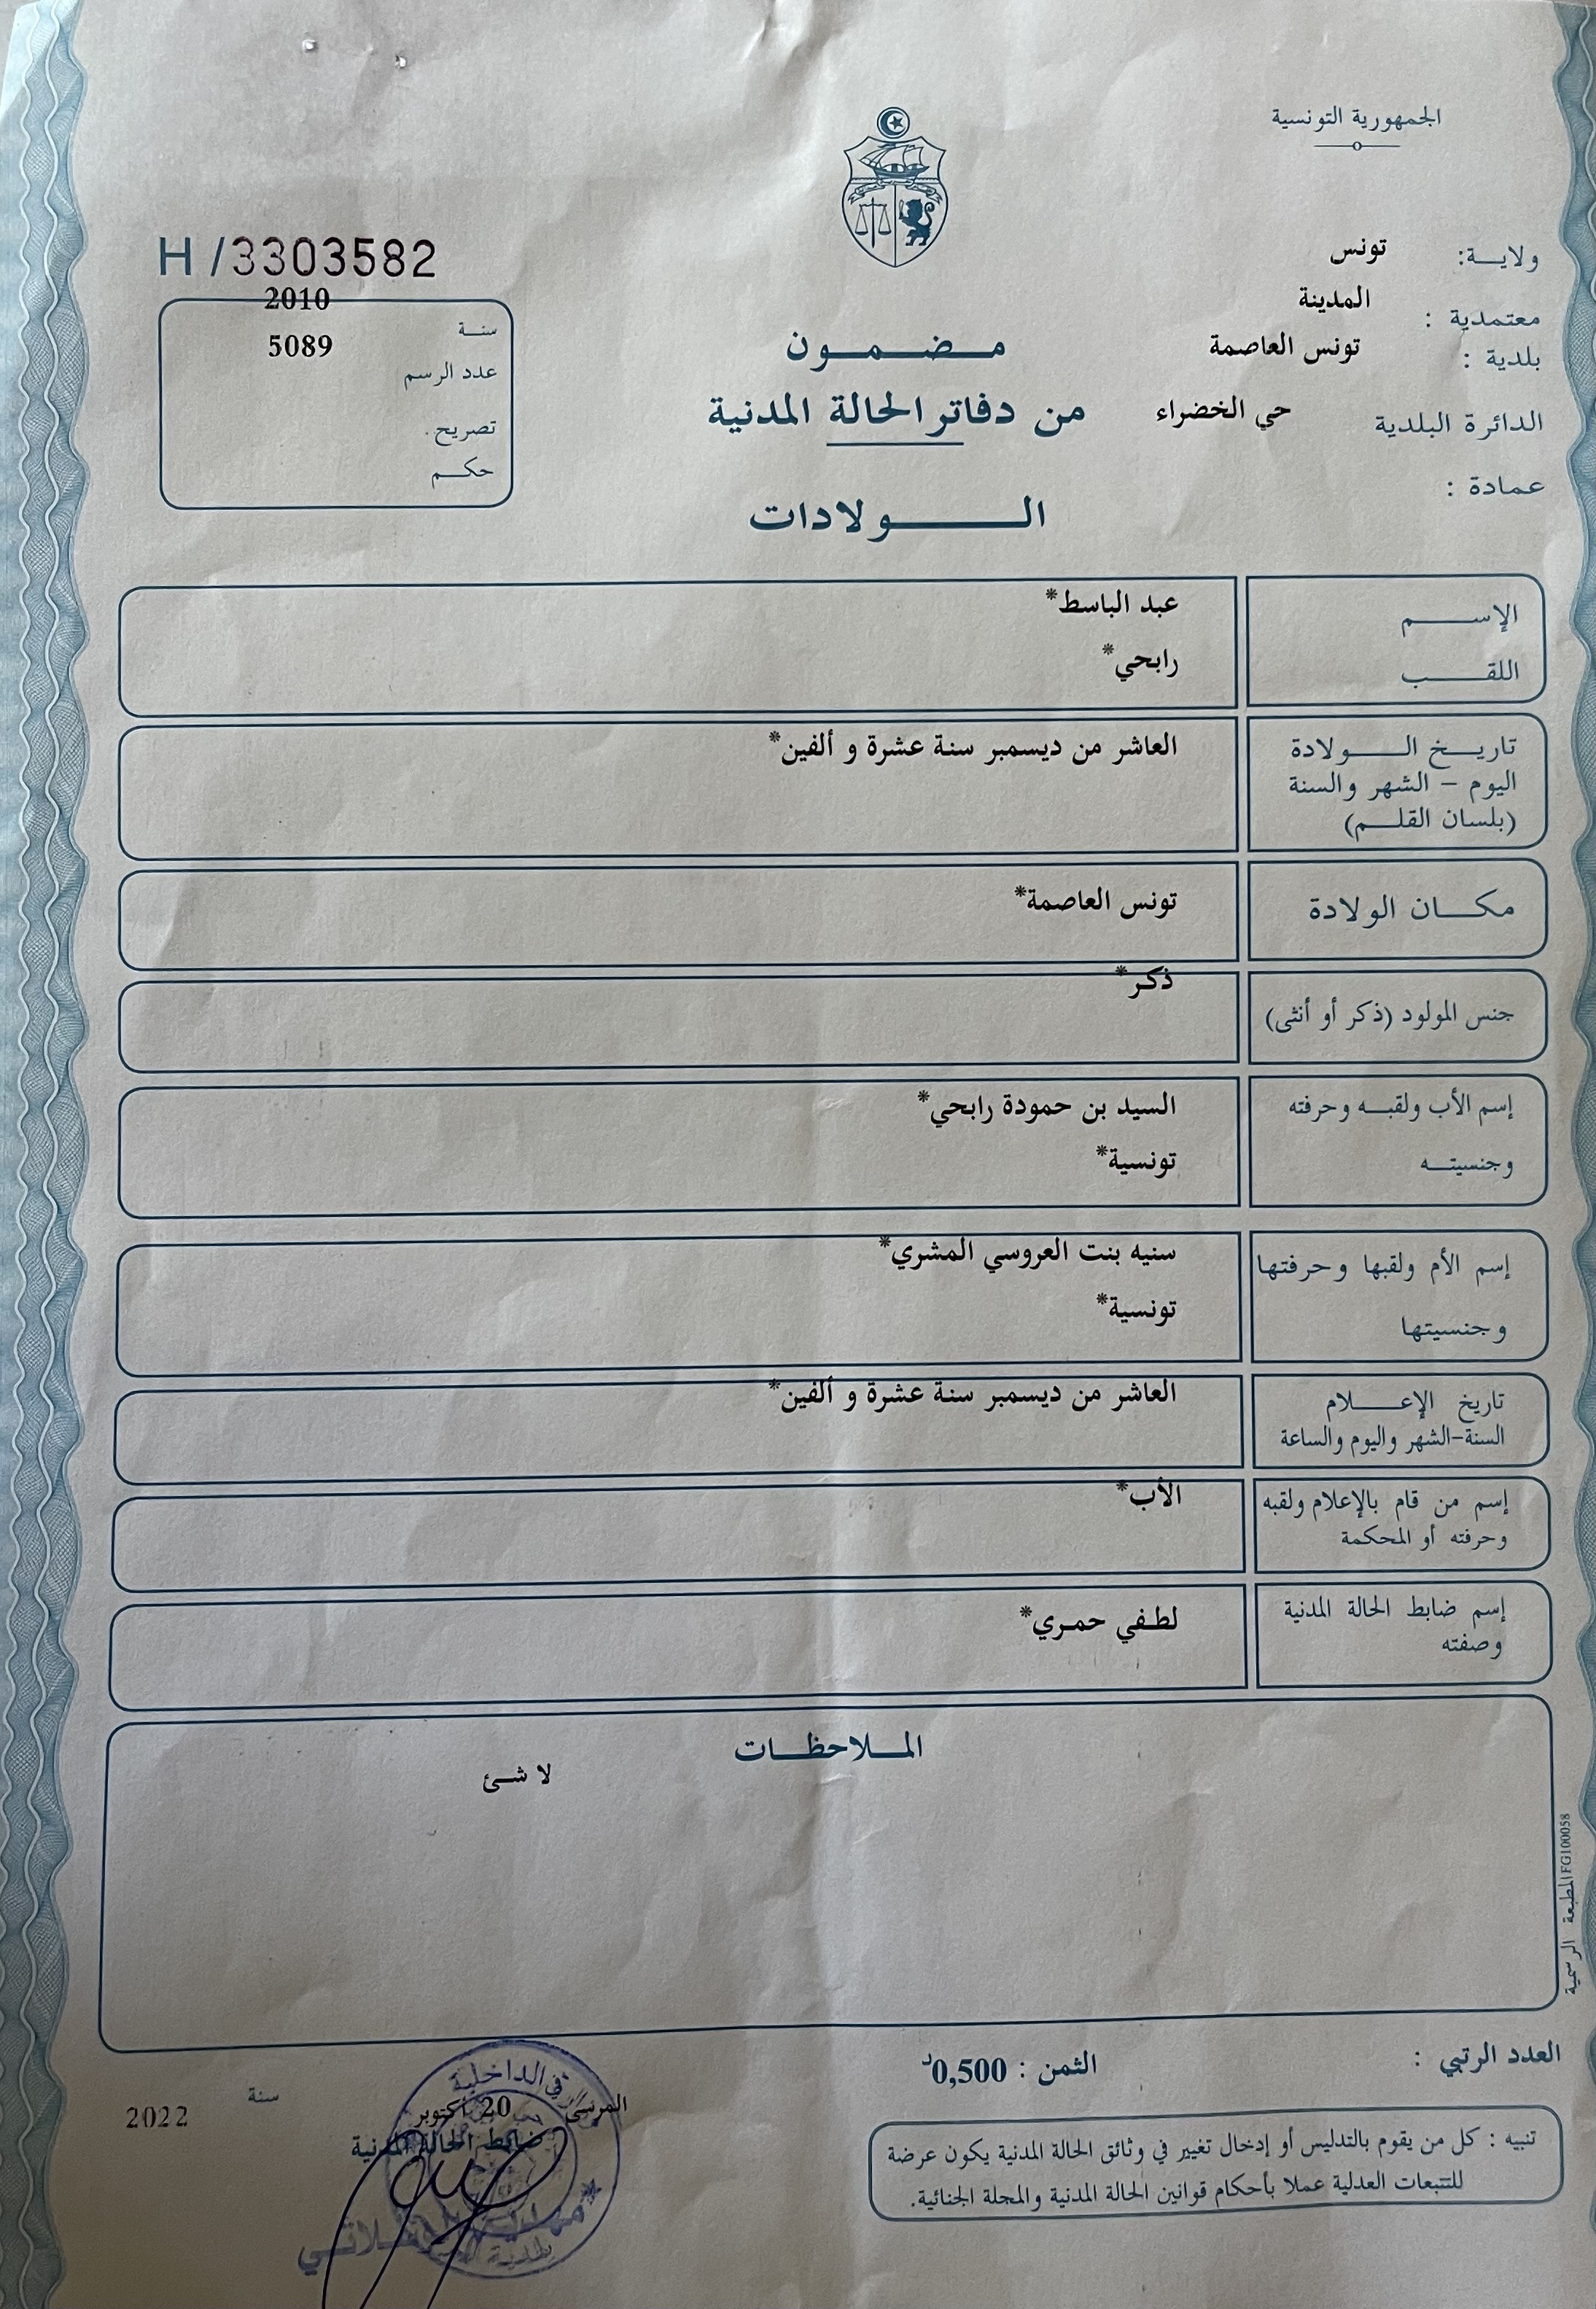 الجمهورية التونسية
ولاية: تونس
معتمدية : المدينة
بلدية : تونس العاصمة
الدائرة البلدية حي الخضراء
عمادة :
H /3303582
سنة 2010
عدد الرسم 5089
تصريح.
حكم
مضمون
من دفاتر الحالة المدنية
الولادات
الإسم عبد الباسط*
اللقب رابحي*
تاريخ الولادة العاشر من ديسمبر سنة عشرة و ألفين*
اليوم - الشهر والسنة
(بلسان القلم)
مكان الولادة تونس العاصمة*
جنس المولود (ذكر أو أنثى) ذكر*
إسم الأب ولقبه وحرفته السيد بن حمودة رابحي*
وجنسيته تونسية*
إسم الأم ولقبها وحرفتها سنيه بنت العروسي المشري*
وجنسيتها تونسية*
تاريخ الإعلام العاشر من ديسمبر سنة عشرة و ألفين*
السنة-الشهر واليوم والساعة
إسم من قام بالإعلام ولقبه الأب*
وحرفته أو المحكمة
إسم ضابط الحالة المدنية لطفي حمري*
وصفته
الملاحظات
لا شئ
المطبعة الرسمية FG100058
العدد الرتبي :
الثمن : 0,500د
تنبيه : كل من يقوم بالتدليس أو إدخال تغيير في وثائق الحالة المدنية يكون عرضة
للتتبعات العدلية عملا بأحكام قوانين الحالة المدنية والمجلة الجنائية.
المرسى 20 أكتوبر سنة 2022
ضابط الحالة المدنية
الداخلية
بلدية